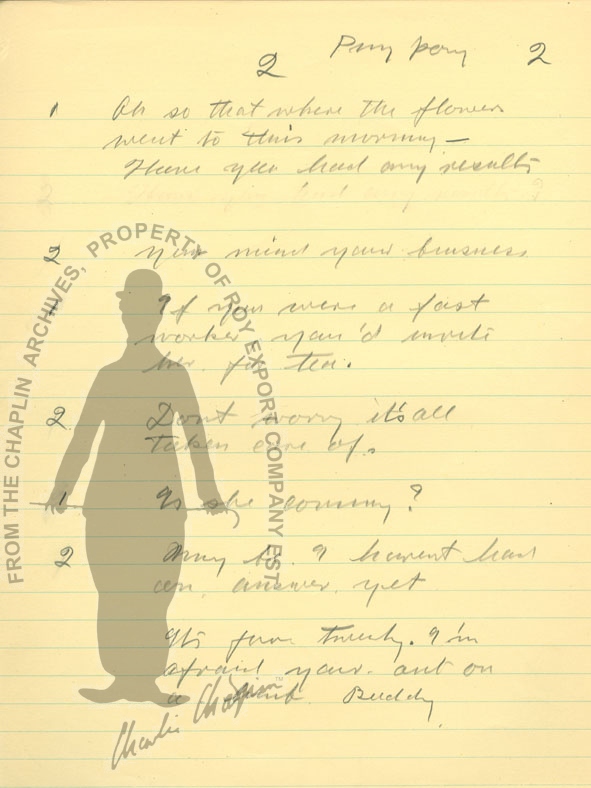 2 Ping pong 2
1 Oh so that where the flowers
went to this morning —
Have you had any results
2 You mind your business
1 If you were a fast
worker you'd invite
her for tea.
2 Dont worry it's all
taken care of.
1 Is she coming?
2 I havent had
an answer yet
Its four twenty. I'm
afraid your out on
a limb Buddy
FROM THE CHAPLIN ARCHIVES, PROPERTY OF ROY EXPORT COMPANY EST
Charlie Chaplin™